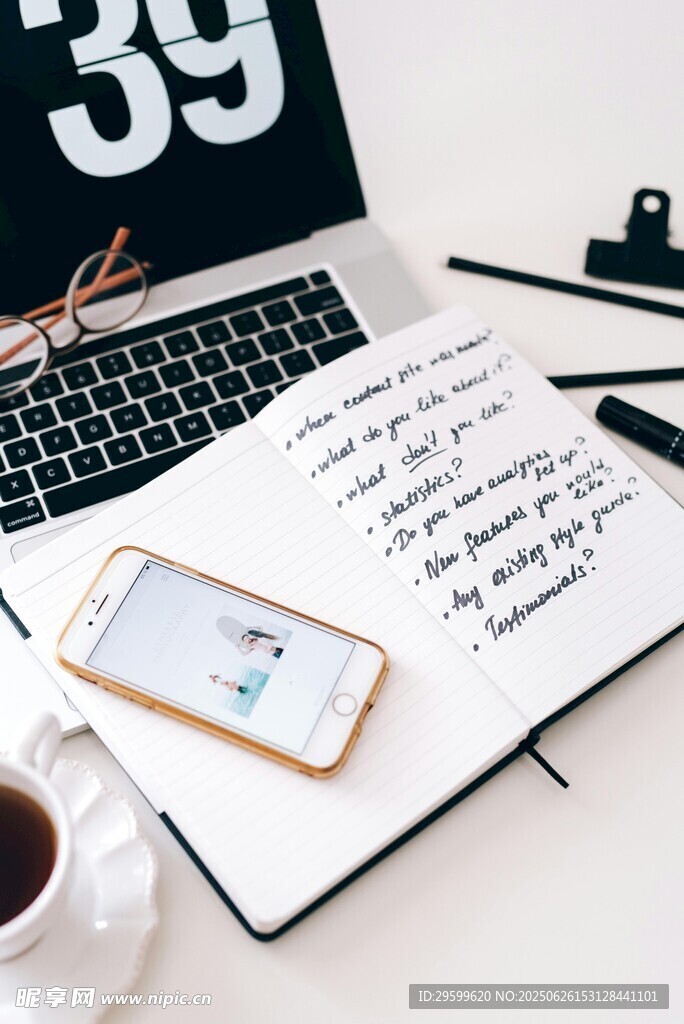 39
• when content site was made?
• what do you like about it?
• what don't you like?
• statistics?
• Do you have analytics set up?
• New features you would like?
• Any existing style guide?
• Testimonials?
command
昵享网 www.nipic.cn
ID:29599620 NO:20250626153128441101